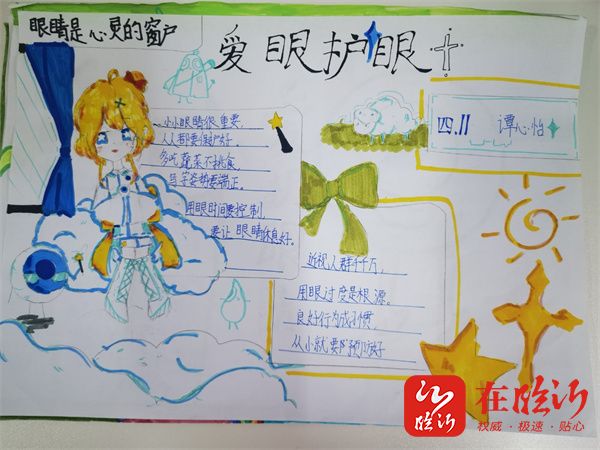 眼睛是心灵的窗户
爱眼护眼
四.11 谭心怡
小小眼睛很重要,
人人都要保护好。
多吃蔬菜不挑食,
写字姿势要端正。
用眼时间要控制
要让眼睛休息好。
近视人群千千万,
用眼过度是根源。
良好行为成习惯,
从小就要预防好
在临沂
权威·极速·贴心